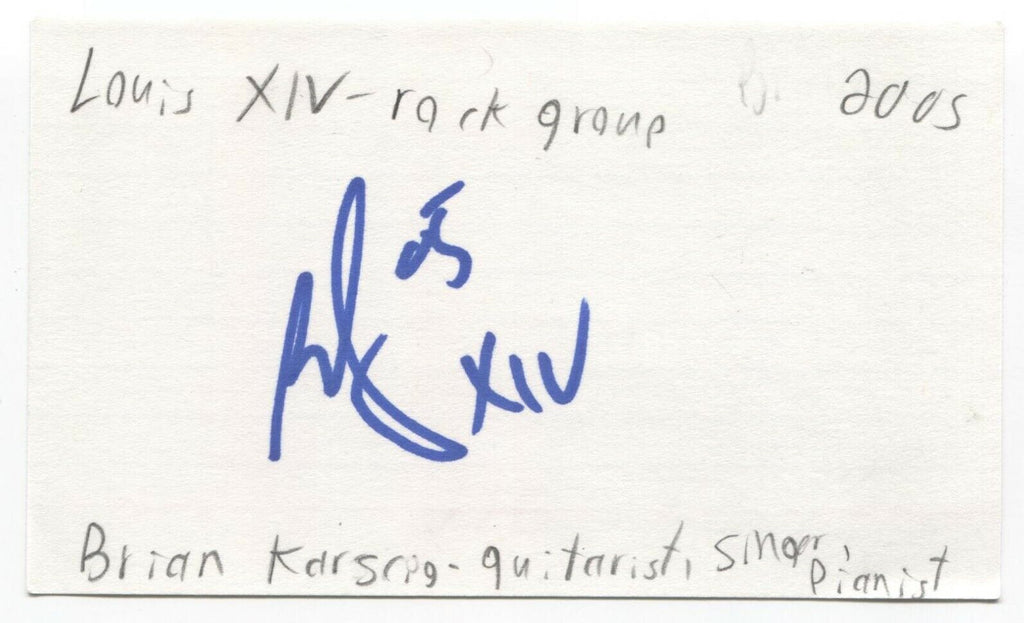 Louis XIV - rock group 2005
05
XIV
Brian Karscig - guitarist, singer,
pianist